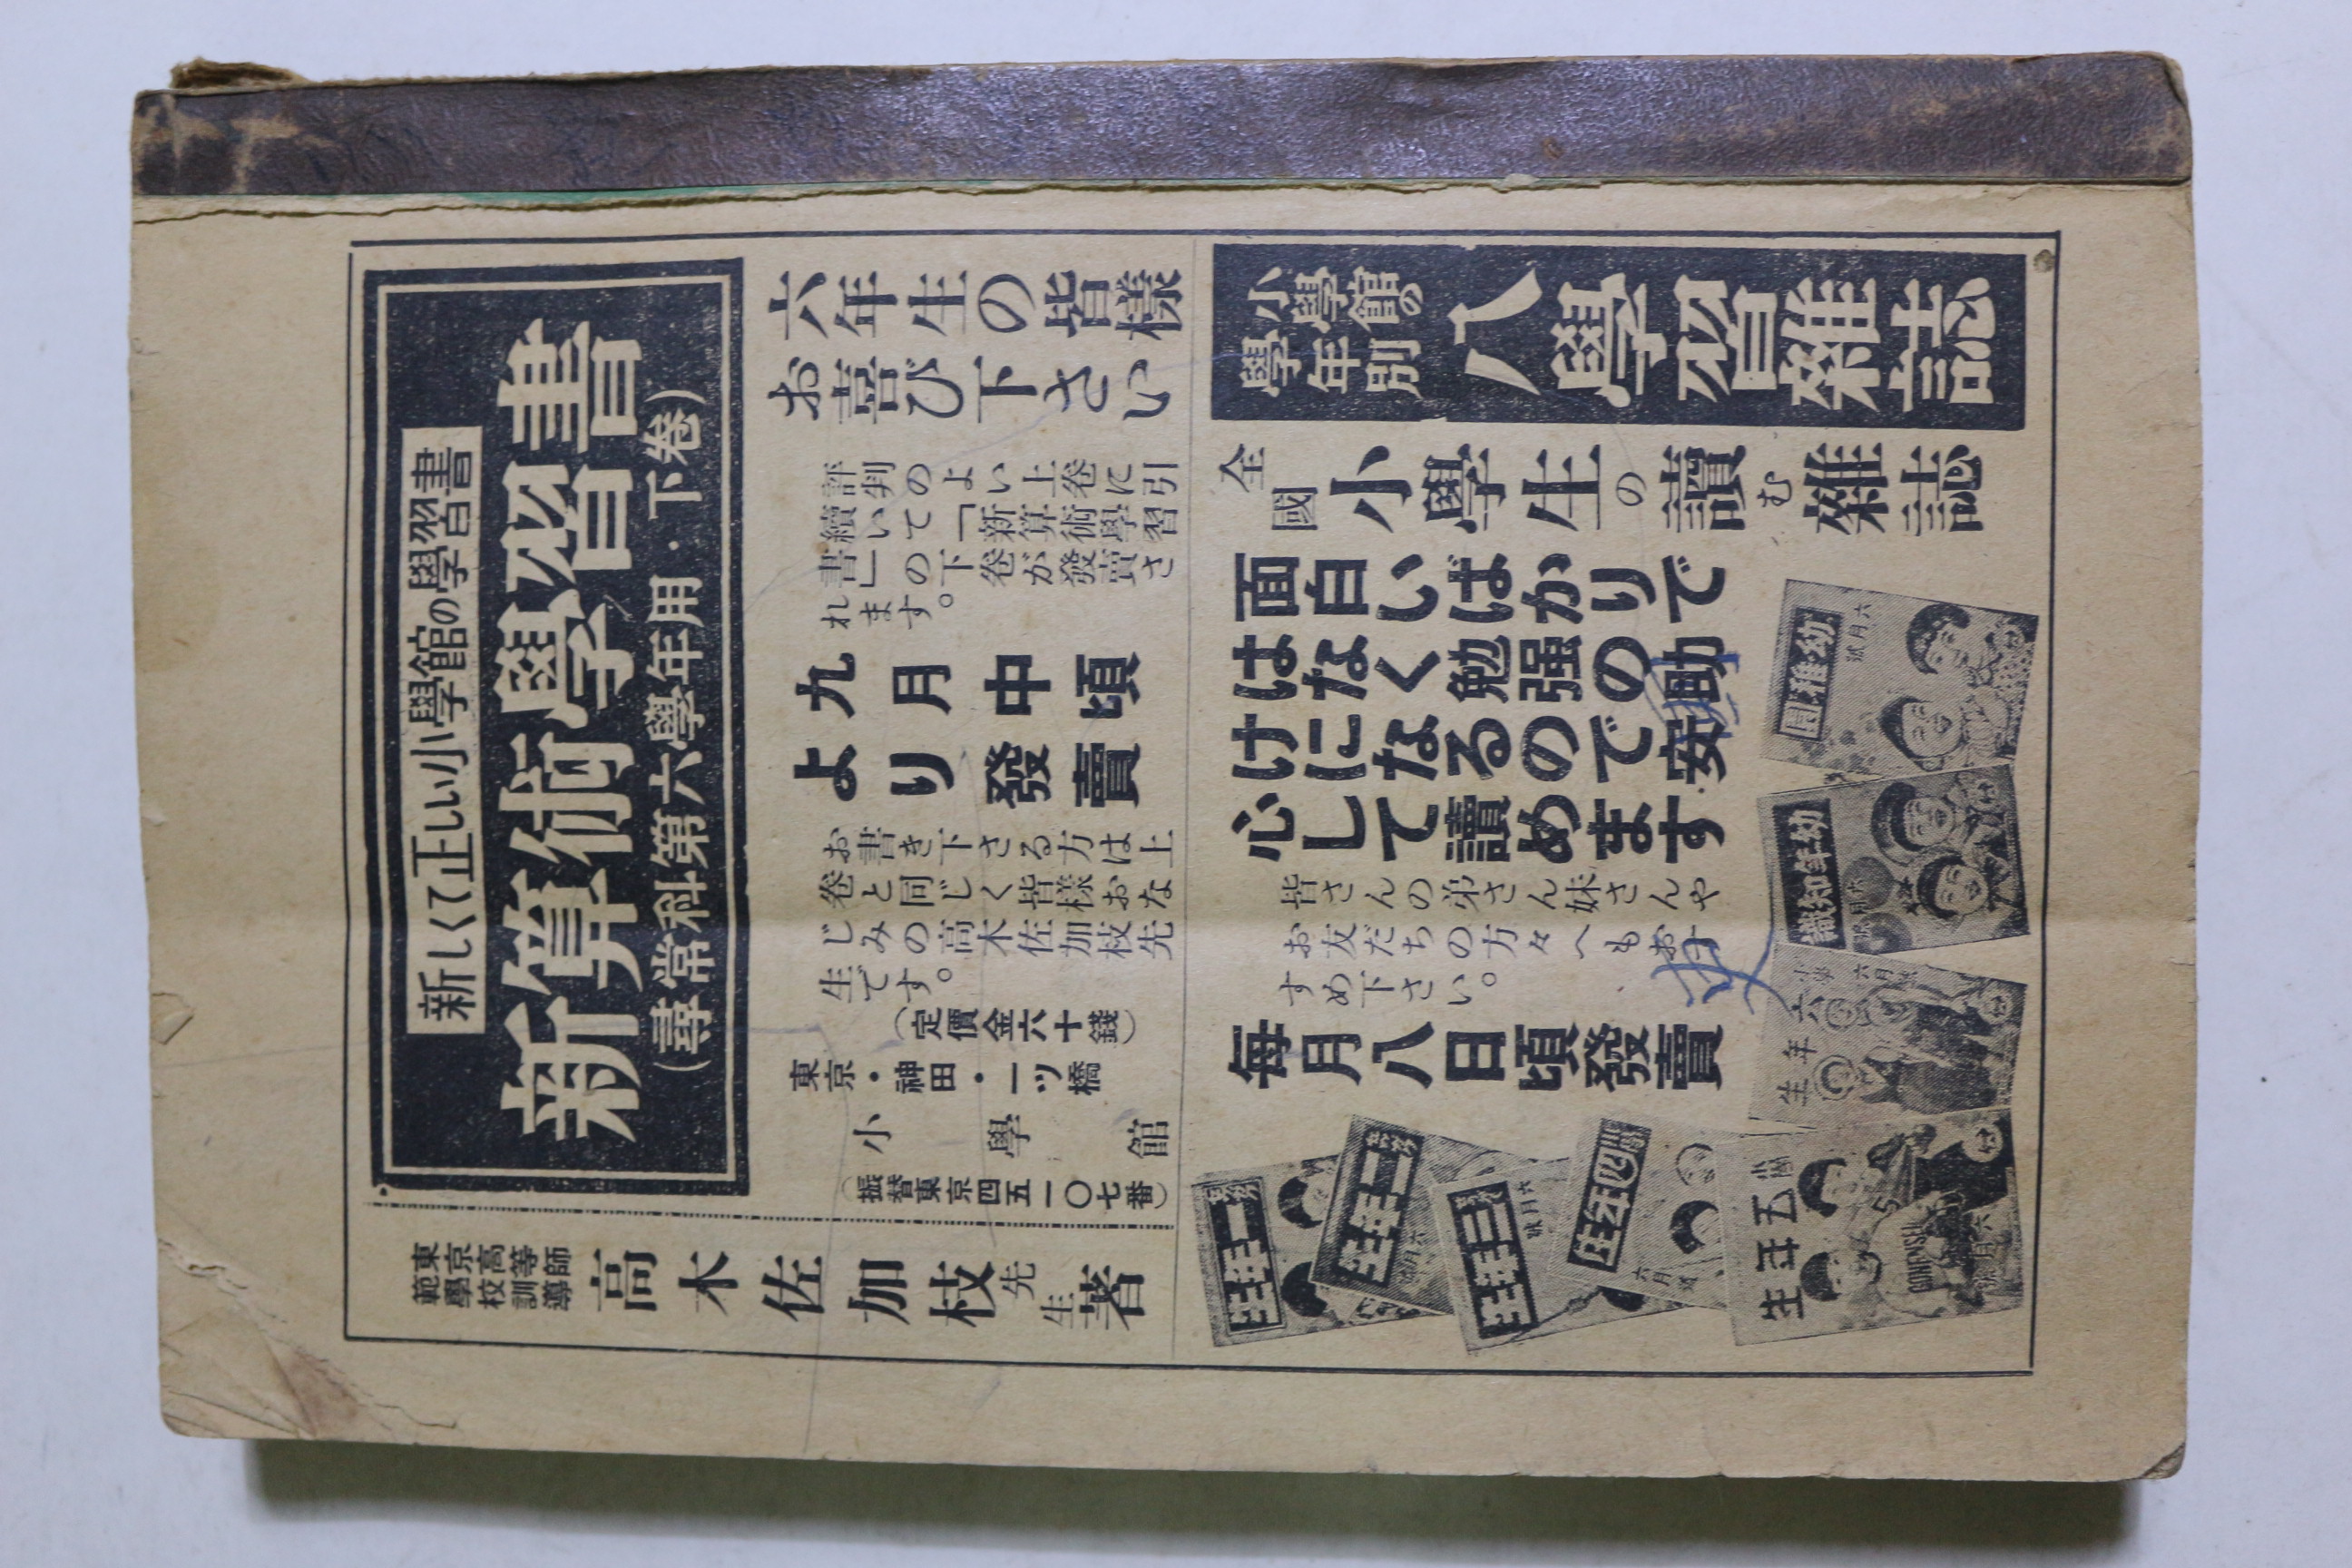 小學館の
學年別
八學習雜誌
全國小學生の讀む雜誌
面白いばかりで
はなく勉强の助
けになるのでも安
心して讀めます
皆さんの弟さん妹さんや
お友だちの方々へもおす
すめ下さい。
每月八日頃發賣
幼稚園
六月號
幼年知識
六月號
小學六年生
六月號
小學五年生
六月號
四年生
六月號
三年生
六月號
二年生
六月號
一年生
新しくて正しい小學館の學習書
新算術學習書
(尋常科第六學年用・下卷)
六年生の皆樣
お喜び下さい
評判のよい上卷に引
續いて「新算術學習
書」の下卷が發賣さ
れます。
九月中頃
より發賣
お書き下さる方は上
卷と同じく皆樣おな
じみの高木佐加枝先
生です。
(定價金六十錢)
東京・神田・一ツ橋
小學館
(振替東京四五一〇七番)
東京高等師
範學校訓導
高木佐加枝先生著